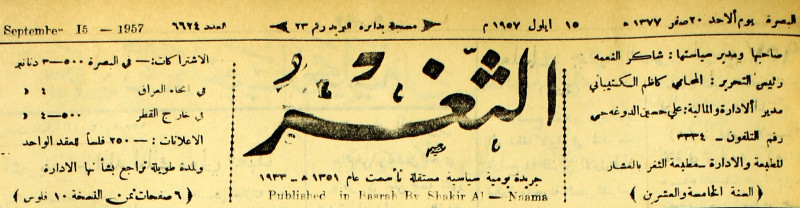 البصرة يوم الاحد ٢٠ صفر ١٣٧٧ هـ
١٥ ايلول ١٩٥٧ م
مسجلة بدائرة البريد رقم ٢٣
العدد ٦٦٢٤
September 15 - 1957
صاحبها ومدير سياستها : شاكر النعمه
رئيس التحرير : المحامي كاظم الكشيباني
مدير الادارة والمالية : علي حسين الدوغه جي
رقم التلفون – ٣٣٣٤
المطبعة والادارة – مطبعة الثغر بالعشار
( السنة الخامسة والعشرين )
الثغر
جريدة يومية سياسية مستقلة تأسست عام ١٣٥١ هـ – ١٩٣٣
Published in Basrah By Shakir Al – Naama
الاشتراكات :– في البصرة ٥٠٠–٣ دنانير
في انحاء العراق ٤ د
في خارج القطر ٥٠٠–٤ د
الاعلانات :– ٢٥٠ فلساً للعقد الواحد
ولمدة طويلة تراجع بشأنها الادارة
( ٦ صفحات ثمن النسخة ١٠ فلوس )